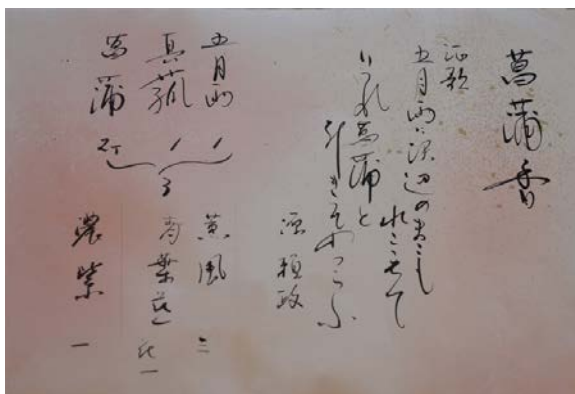 菖蒲香
証歌
五月雨に沢辺のまこも
水こえて
いつれ菖蒲と
引きそわつらふ
源頼政
五月雨 1
真菰 1
菖蒲 2T
3
薫風 二
一
濃紫 一